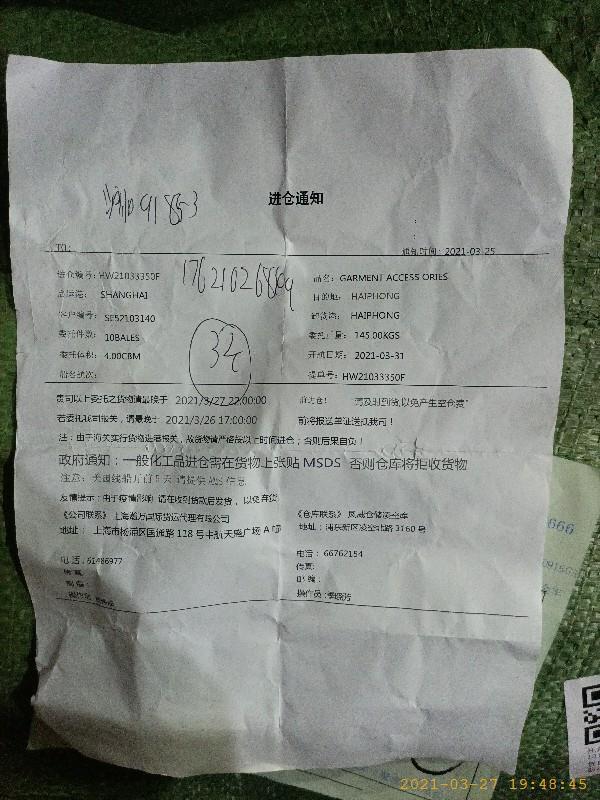 91853
进仓通知
TO:
通知时间：2021-03-25
17621026869
进仓编号：HW21033350F
品名：GARMENT ACCESS ORIES
起运港： SHANGHAI
目的地： HAIPHONG
客户编号： SE52103140
卸货港： HAIPHONG
委托件数： 10BALES
委托重量： 145.00KGS
委托体积： 4.00CBM
开航日期： 2021-03-31
船名航次：
提单号：HW21033350F
贵司以上委托之货物请最晚于 2021/3/27 22:00:00 前进仓! 请及时到货,以免产生空仓费"
若委托我司报关，请最晚于 2021/3/26 17:00:00 前将报送单证送抵我司！
注：由于海关实行货物进港报关，故货物请严格按以上时间进仓；否则后果自负！
政府通知：一般化工品进仓需在货物上张贴 MSDS 否则仓库将拒收货物
注意：美国线船开前5天 请提供 信息
友情提示：由于疫情影响 请在收到货款后发货，以免弃货
《公司联系》上海瀚万国际货运代理有限公司
《仓库联系》 仓储凌空库
地址： 上海市杨浦区国通路 128 号中航天盛广场 A
地址：浦东新区凌空北路 3160 号
电话：61486977
电话： 66762154
传真：
传真：
邮编：
邮编：
操作员
操作员：李晓芳
666
2021-03-27 19:48:45